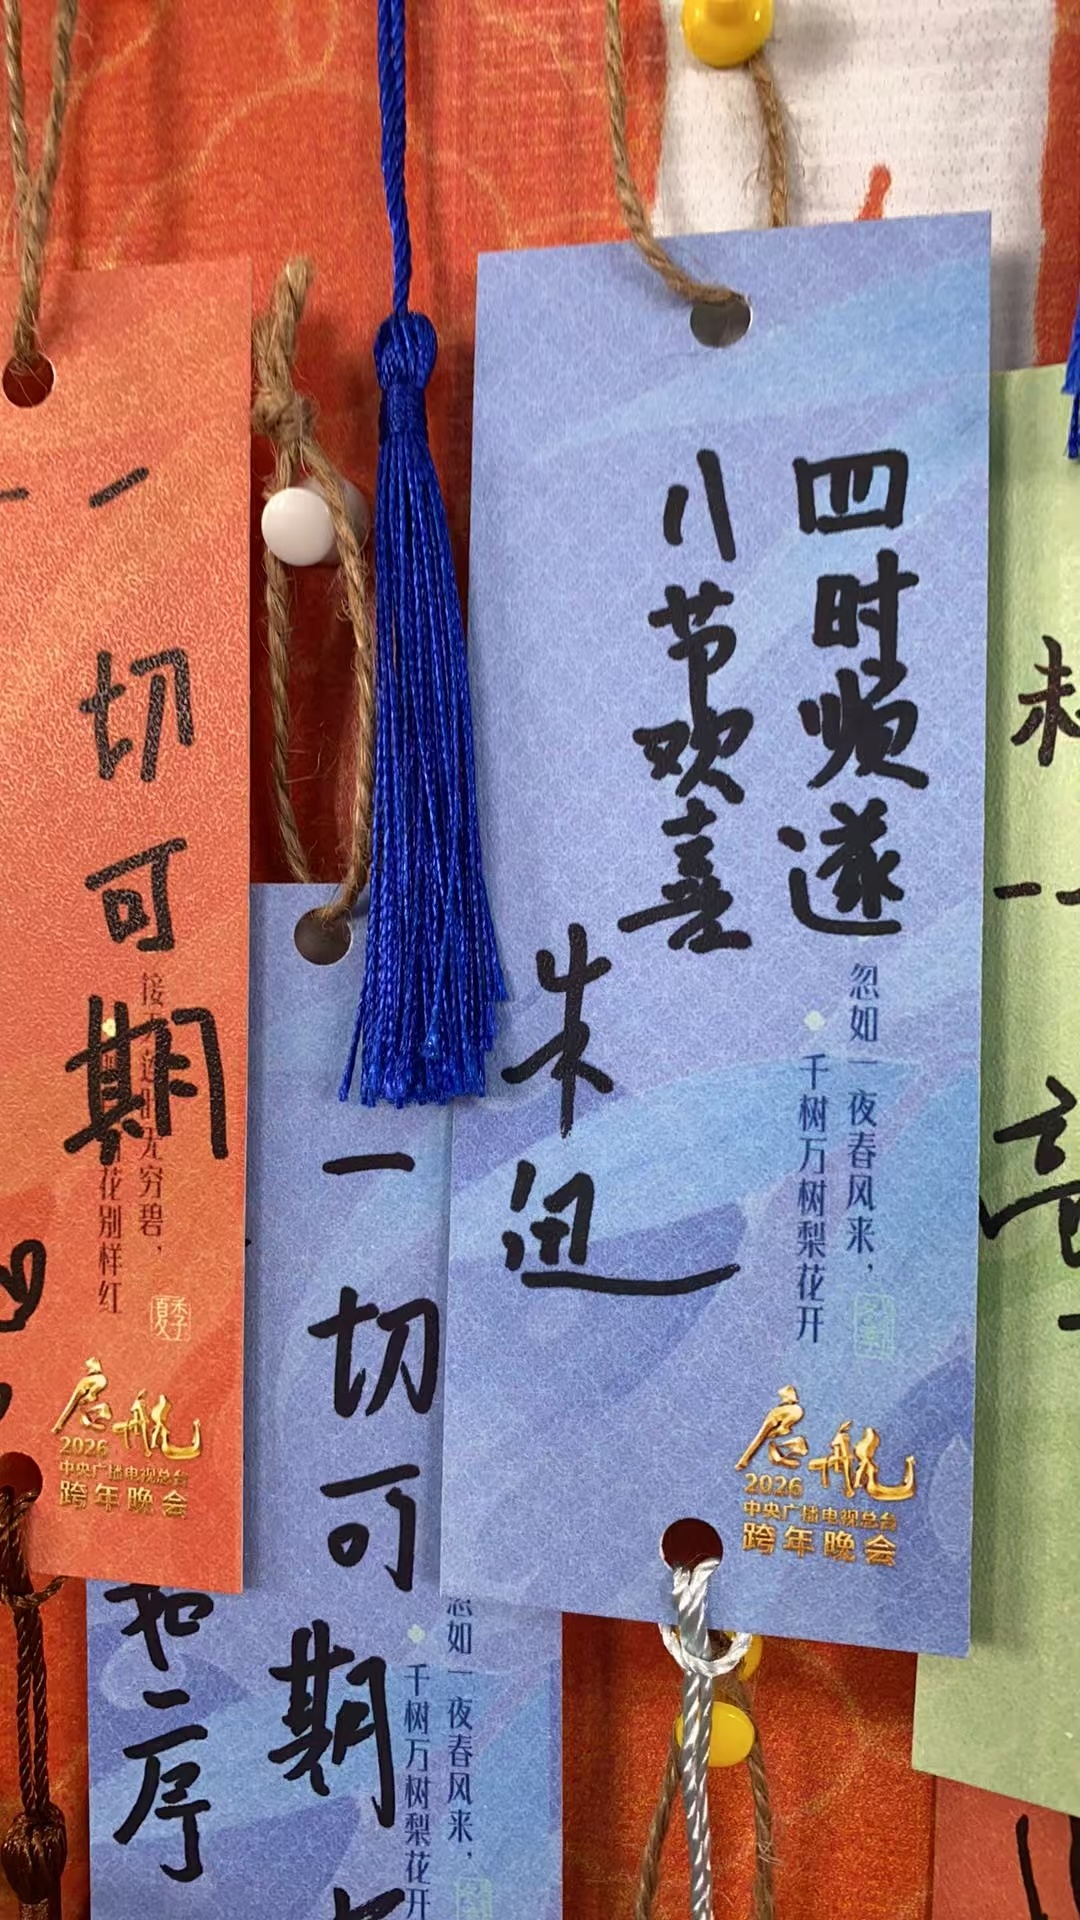 四时顺遂
八节欢喜
朱迅
忽如一夜春风来，
千树万树梨花开
启航
2026
中央广播电视总台
跨年晚会
一切可期
无穷碧，
花别样红
夏季
启航
2026
中央广播电视总台
跨年晚会
一切可期
忽如一夜春风来，
千树万树梨花开
和二序